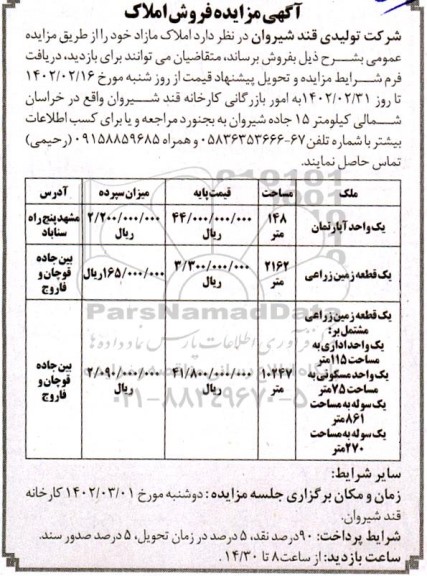 آگهی مزایده فروش املاک
شرکت تولیدی قند شیروان در نظر دارد املاک مازاد خود را از طریق مزایده
عمومی بشرح ذیل بفروش برساند، متقاضیان می توانند برای بازدید، دریافت
فرم شرایط مزایده و تحویل پیشنهاد قیمت از روز شنبه مورخ ۱۴۰۲/۰۲/۱۶
تا روز ۱۴۰۲/۰۲/۳۱به امور بازرگانی کارخانه قند شیروان واقع در خراسان
شمالی کیلومتر ۱۵ جاده شیروان به بجنورد مراجعه و یا برای کسب اطلاعات
بیشتر با شماره تلفن ۶۷-۰۵۸۳۶۳۵۳۶۶۶ و همراه ۰۹۱۵۸۸۵۹۶۸۵ (رحیمی)
تماس حاصل نمایند.
ملک مساحت قیمت پایه میزان سپرده آدرس
یک واحد آپارتمان ۱۴۸ متر ۴۴/۰۰۰/۰۰۰/۰۰۰ ریال ۲/۲۰۰/۰۰۰/۰۰۰ ریال مشهد پنج راه سناباد
یک قطعه زمین زراعی ۲۱۶۲ متر ۳/۳۰۰/۰۰۰/۰۰۰ ریال ۱۶۵/۰۰۰/۰۰۰ ریال بین جاده قوچان و فاروج
یک قطعه زمین زراعی
مشتمل بر:
یک واحد اداری به
مساحت ۱۱۵ متر
یک واحد مسکونی به
مساحت ۷۵ متر
یک سوله به مساحت
۸۶۱ متر
یک سوله به مساحت
۲۷۰ متر
۱۰۲۴۷ متر ۴۱/۸۰۰/۰۰۰/۰۰۰ ریال ۲/۰۹۰/۰۰۰/۰۰۰ ریال بین جاده قوچان و فاروج
ParsNamadData
۰۲۱-۸۸۳۴۹۶۷۰-۵
سایر شرایط:
زمان و مکان برگزاری جلسه مزایده : دوشنبه مورخ ۱۴۰۲/۰۳/۰۱ کارخانه
قند شیروان.
شرایط پرداخت: ۹۰ درصد نقد، ۵ درصد در زمان تحویل، ۵ درصد صدور سند.
ساعت بازدید: از ساعت ۸ تا ۱۴/۳۰ .